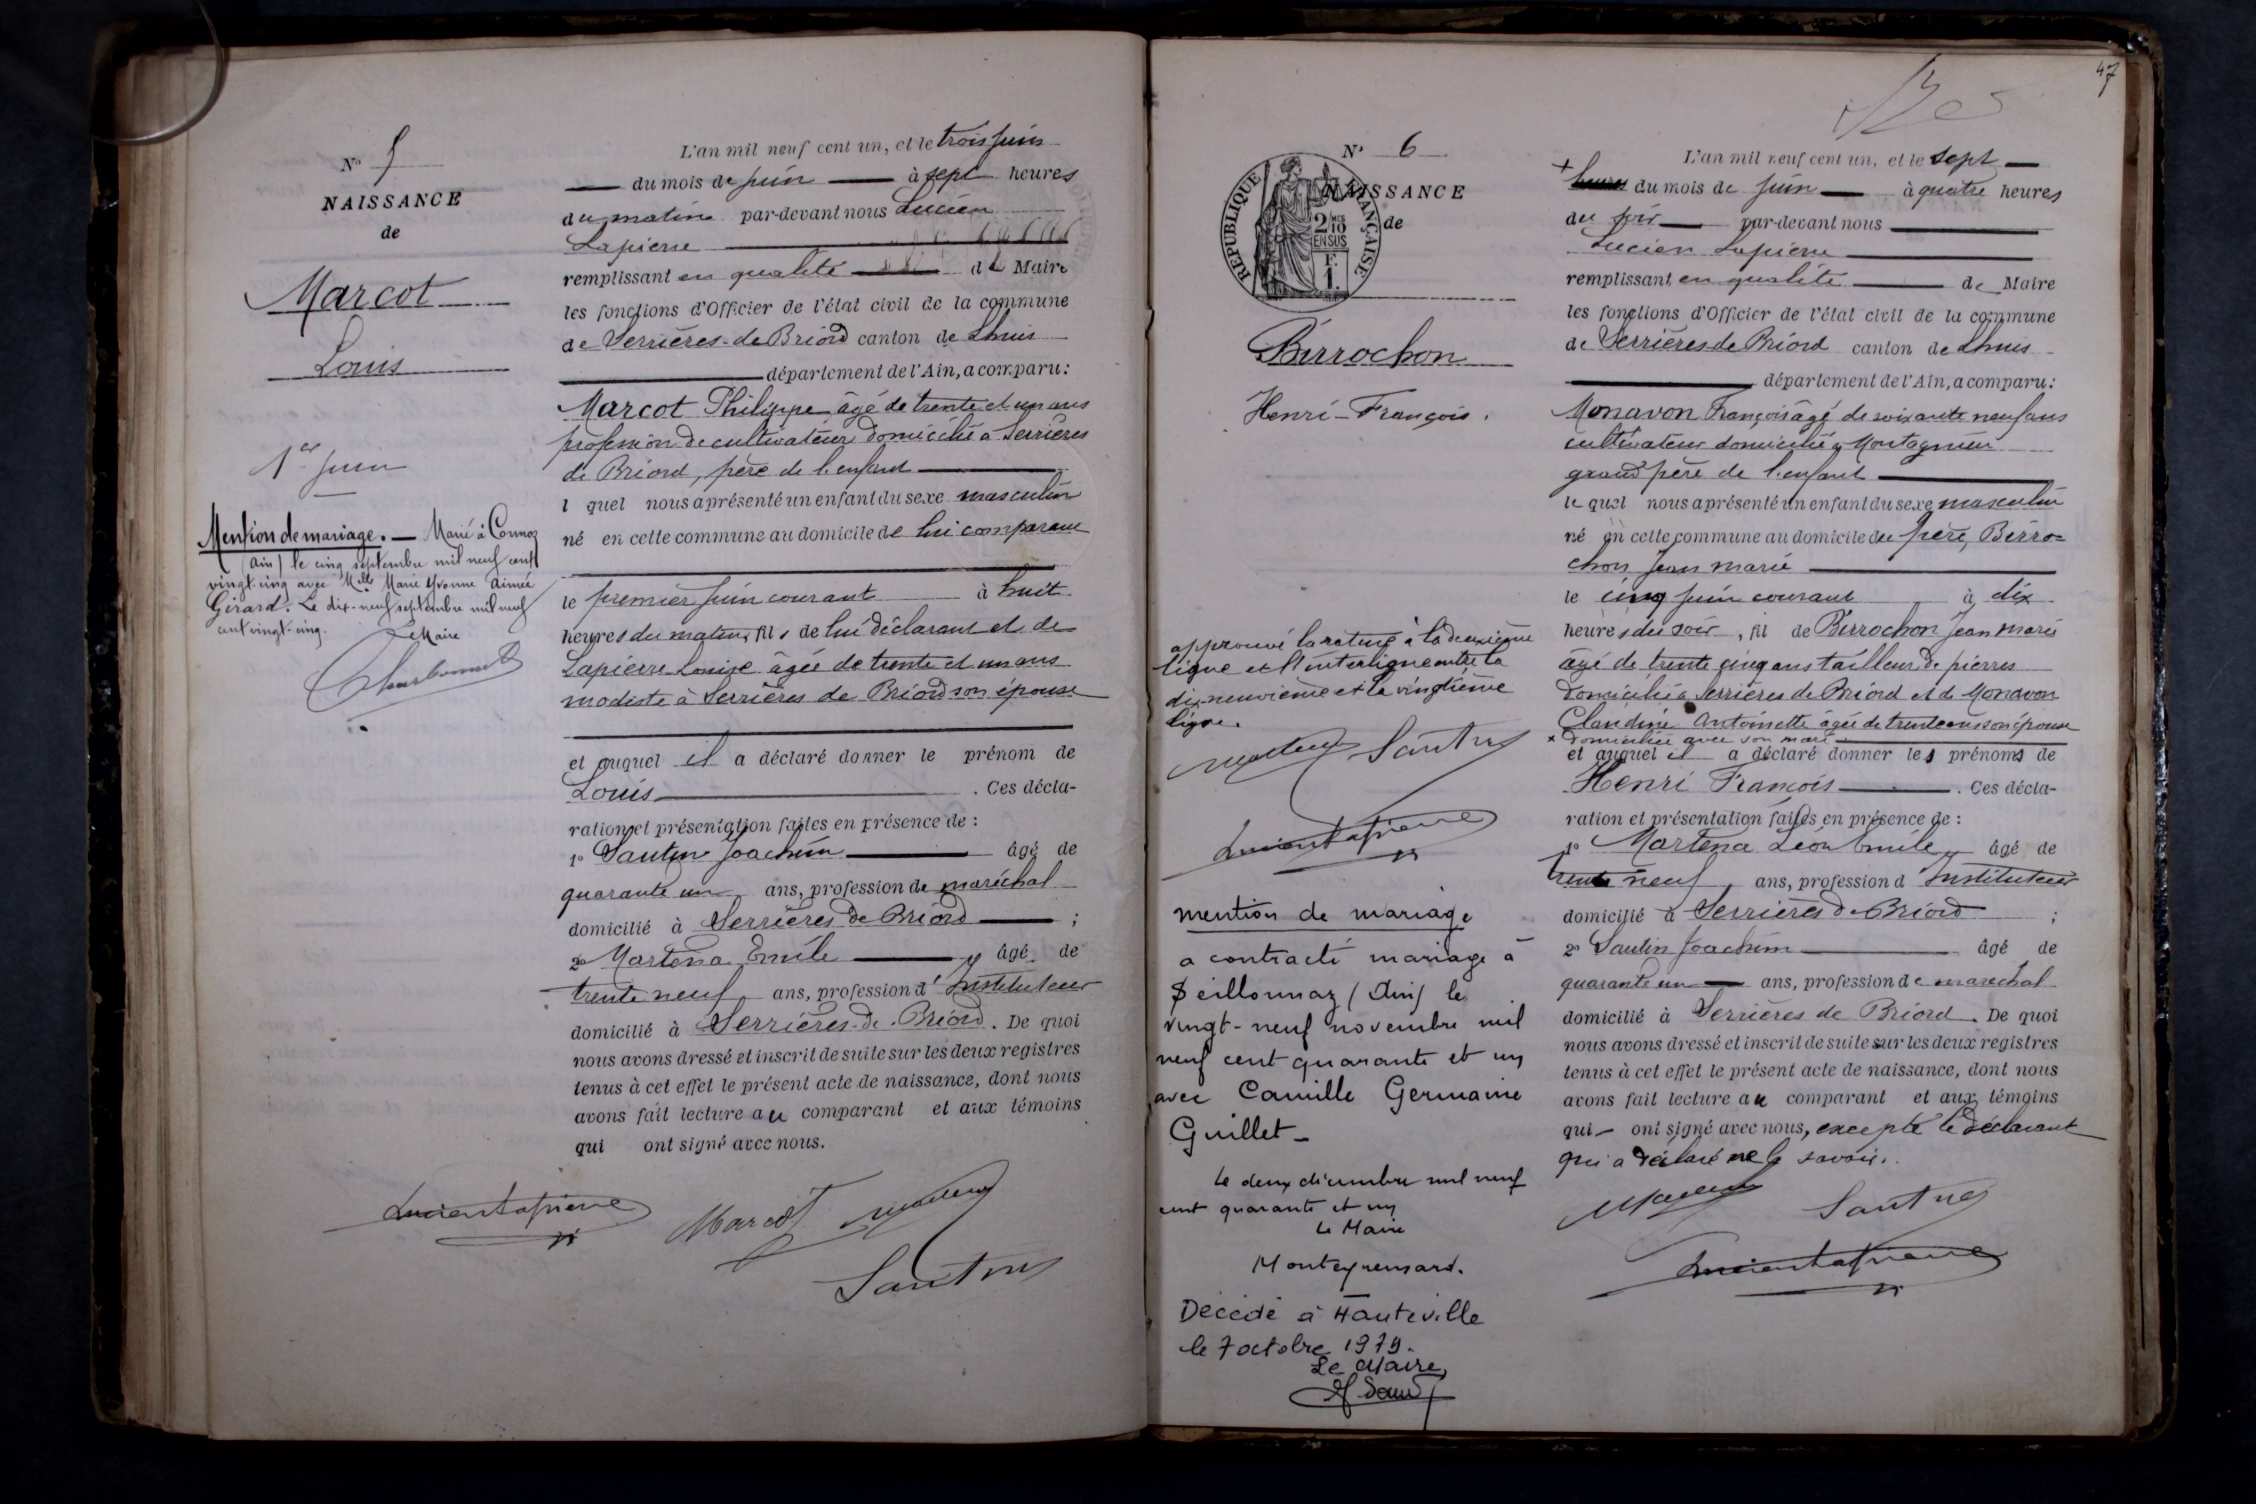 N° 5
NAISSANCE
de
Marcot
Louis
1er juin
Mention de mariage. — Marié à Connoz
(Ain) le cinq septembre mil neuf cent
vingt-cinq avec Mlle Marie Yvonne Aimée
Girard. Le dix-neuf septembre mil neuf
cent vingt-cinq.
Le Maire
L'an mil neuf cent un, et le trois juin
du mois de juin à sept heures
du matin par-devant nous Lucien
Lapierre
remplissant en qualité de Maire
les fonctions d'Officier de l'état civil de la commune
de Serrières-de-Briord canton de Lhuis
département de l'Ain, a comparu:
Marcot Philippe âgé de trente et un ans
profession de cultivateur domicilié à Serrières
de Briord, père de l'enfant
l quel nous a présenté un enfant du sexe masculin
né en cette commune au domicile de lui comparant
le premier juin courant à huit
heures du matin, fils de lui déclarant et de
Lapierre Louise âgée de trente et un ans
modiste à Serrières de Briord son épouse
et auquel il a déclaré donner le prénom de
Louis. Ces décla-
ration et présentation faites en présence de :
1° Santin Joachim âgé de
quarante un ans, profession de maréchal
domicilié à Serrières de Briord ;
2° Martena Emile âgé de
trente neuf ans, profession d'Instituteur
domicilié à Serrières-de-Briord. De quoi
nous avons dressé et inscrit de suite sur les deux registres
tenus à cet effet le présent acte de naissance, dont nous
avons fait lecture au comparant et aux témoins
qui ont signé avec nous.
Lucien Lapierre
Marcot
Santin
47
N° 6
NAISSANCE
de
RÉPUBLIQUE FRANÇAISE
2/10
EN SUS
F.
1.
Birrochon
Henri-François.
approuvé la rature à la deuxième
ligne et l'interligne entre la
dix-neuvième et la vingtième
ligne.
Santin
Lucien Lapierre
mention de mariage
a contracté mariage à
Seillonnaz (Ain) le
vingt-neuf novembre mil
neuf cent quarante et un
avec Camille Germaine
Guillet-
Le deux décembre mil neuf
cent quarante et un
Le Maire
Décédé à Hauteville
le 7 octobre 1979.
Le Maire,
L'an mil neuf cent un, et le sept
+ heures du mois de juin à quatre heures
du soir par-devant nous
Lucien Lapierre
remplissant en qualité de Maire
les fonctions d'Officier de l'état civil de la commune
de Serrières de Briord canton de Lhuis
département de l'Ain, a comparu:
Monavon François âgé de soixante neuf ans
cultivateur domicilié à Montagnieu
grand père de l'enfant
le quel nous a présenté un enfant du sexe masculin
né en cette commune au domicile du père, Birro-
chon Jean Marie
le cinq juin courant à dix
heures du soir, fil de Birrochon Jean Marie
âgé de trente cinq ans tailleur de pierres
domicilié à Serrières de Briord et de Monavon
Claudine Antoinette âgée de trente ans son épouse
x domiciliée avec son mari
et auquel il a déclaré donner les prénoms de
Henri François. Ces décla-
ration et présentation faites en présence de :
1° Martena Léon Emile âgé de
trente neuf ans, profession d'Instituteur
domicilié à Serrières de Briord ;
2° Santin Joachim âgé de
quarante un ans, profession de maréchal
domicilié à Serrières de Briord. De quoi
nous avons dressé et inscrit de suite sur les deux registres
tenus à cet effet le présent acte de naissance, dont nous
avons fait lecture au comparant et aux témoins
qui ont signé avec nous, excepté le déclarant
qui a déclaré ne le savoir.
Santin
Lucien Lapierre